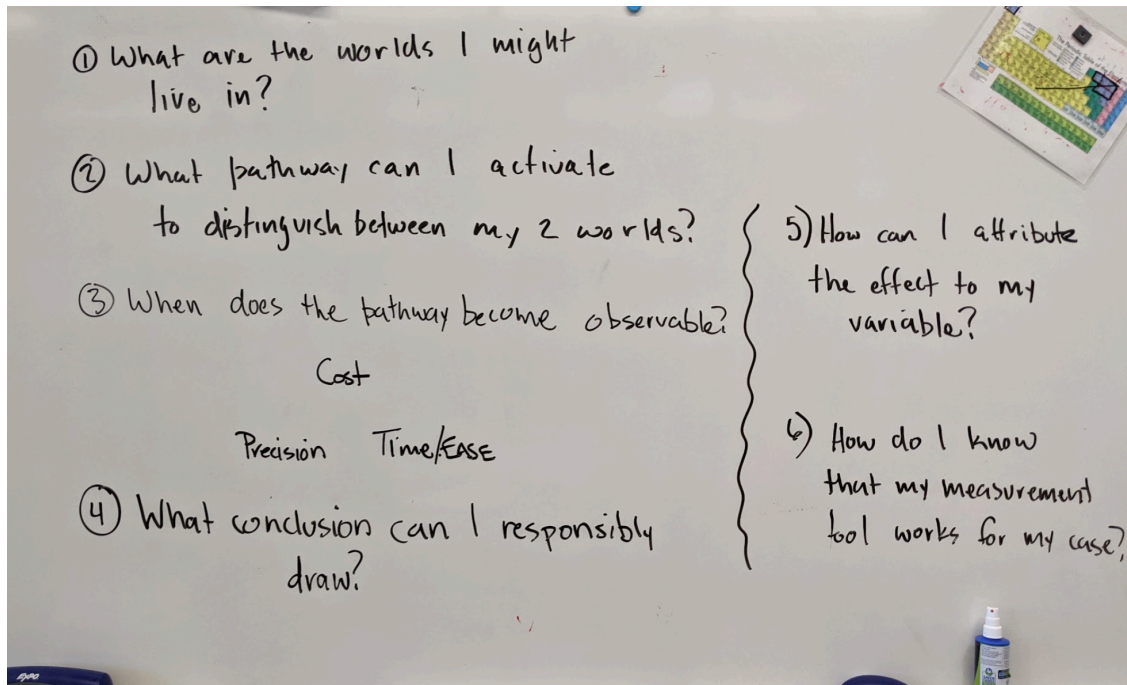 ① What are the worlds I might
live in?
② What pathway can I activate
to distinguish between my 2 worlds?
③ When does the pathway become observable?
Cost
Precision Time/EASE
④ What conclusion can I responsibly
draw?
5) How can I attribute
the effect to my
variable?
6) How do I know
that my measurement
tool works for my case?
The Periodic Table of the
EXPO